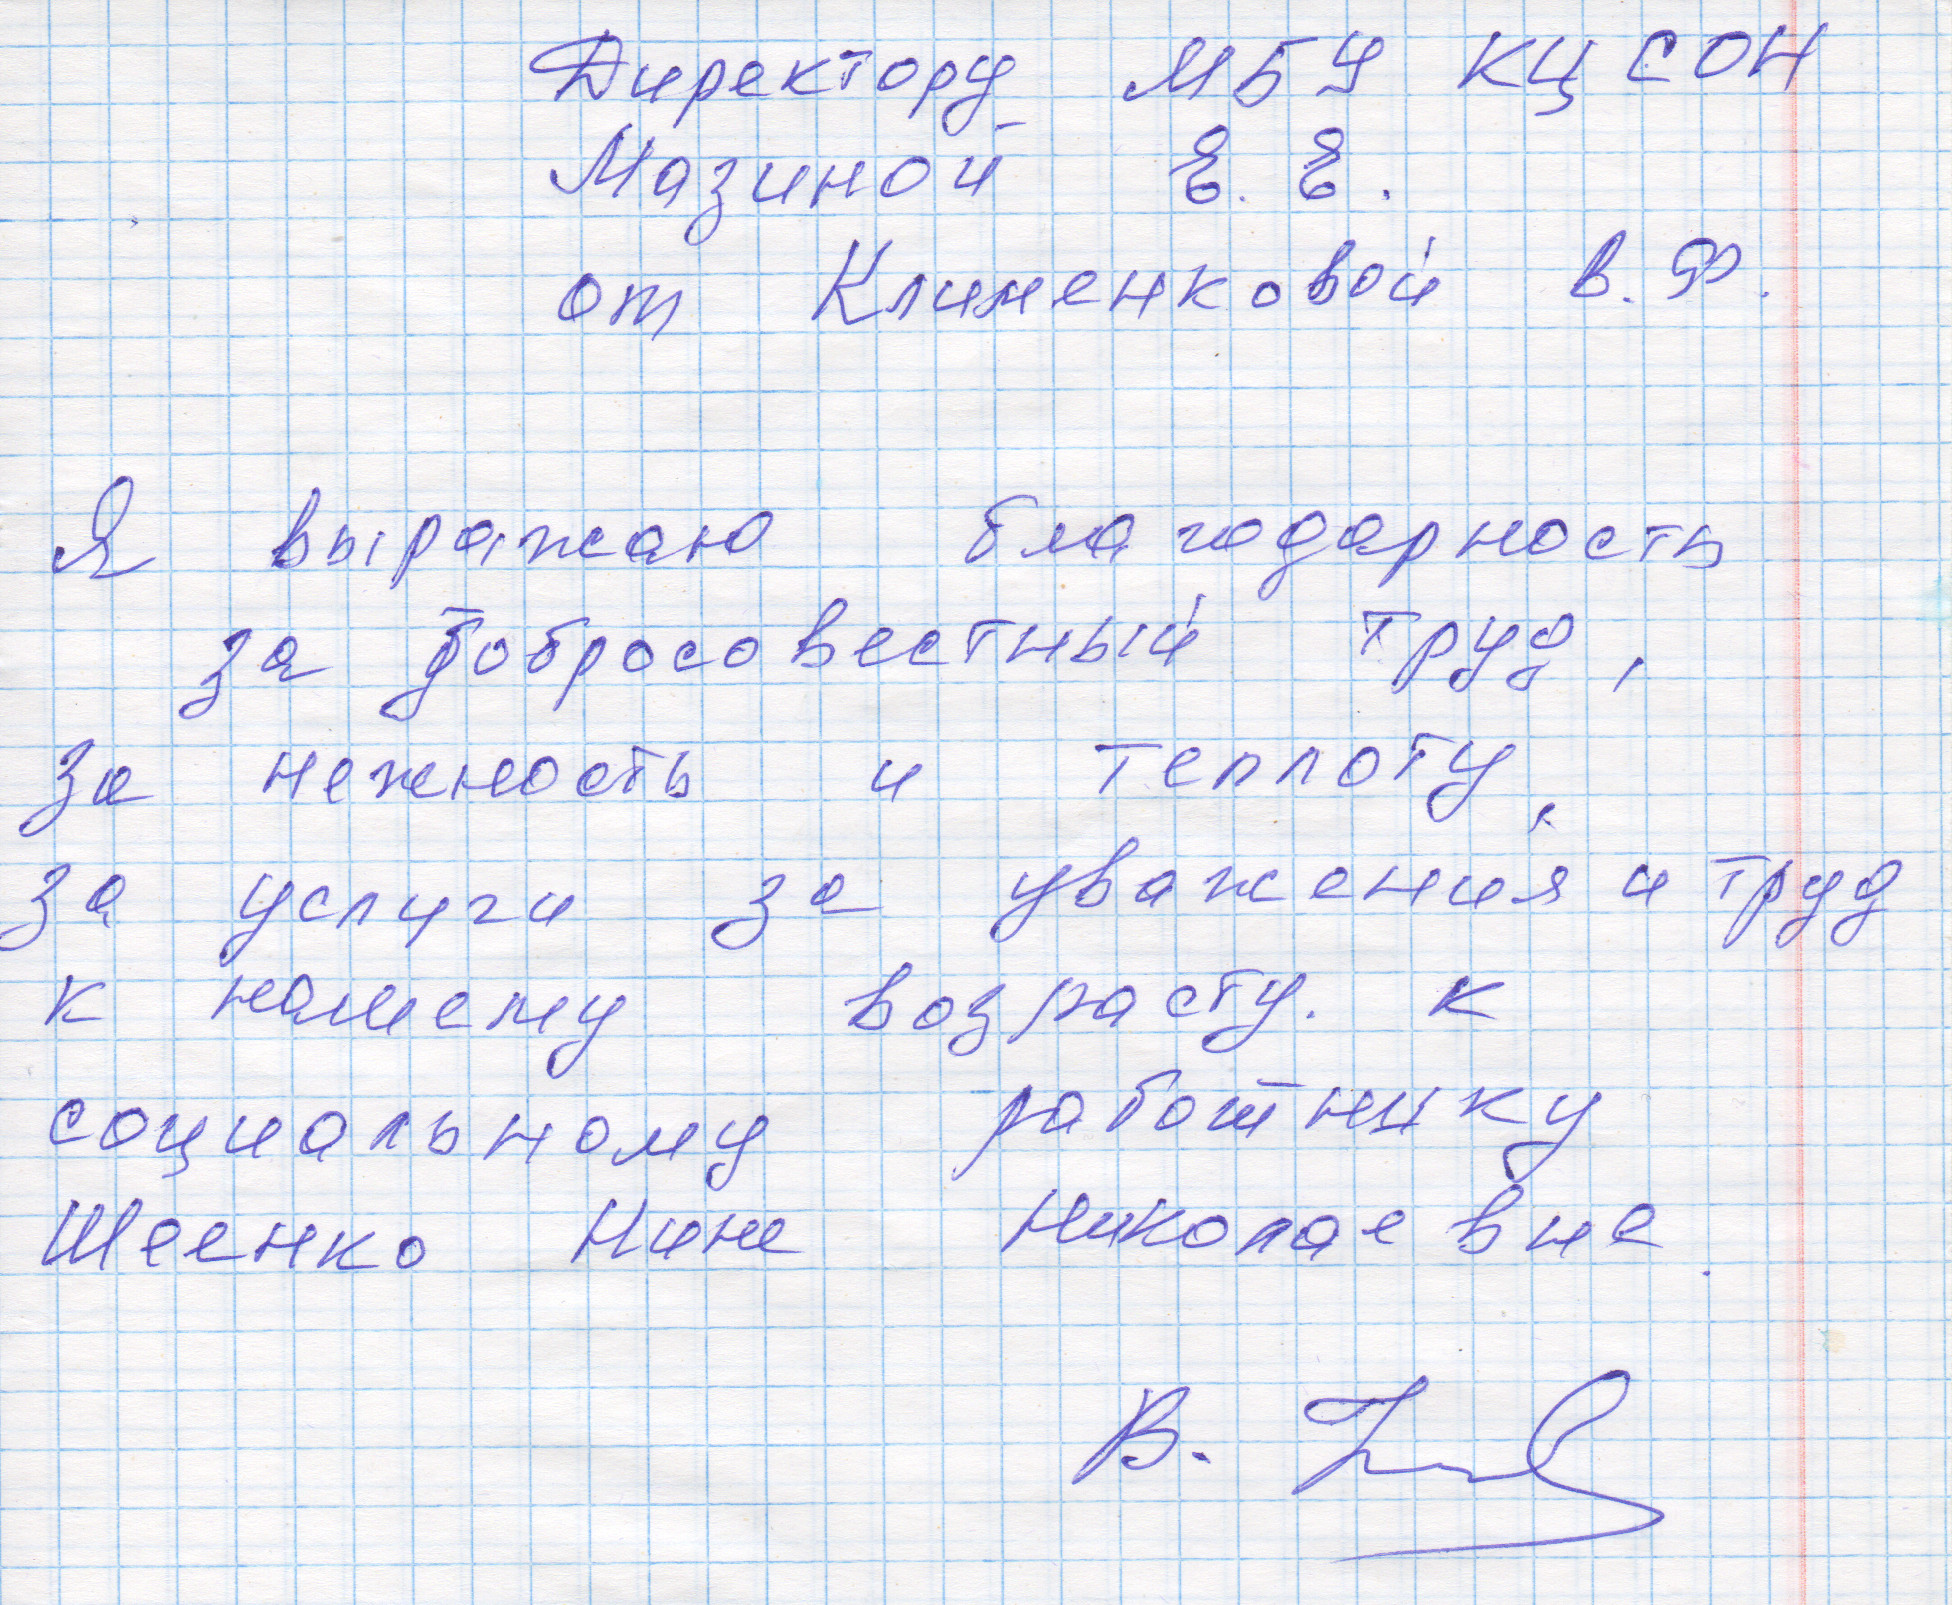 Директору МБУ КЦСОН
Мазиной Е. Е.
от Клименковой В. Ф.
Я выражаю благодарность
за добросовестный труд,
за нежность и теплоту,
за услуги за уважения и труд
к нашему возрасту. к
социальному работнику
Шеенко Нине Николаевне.
В.